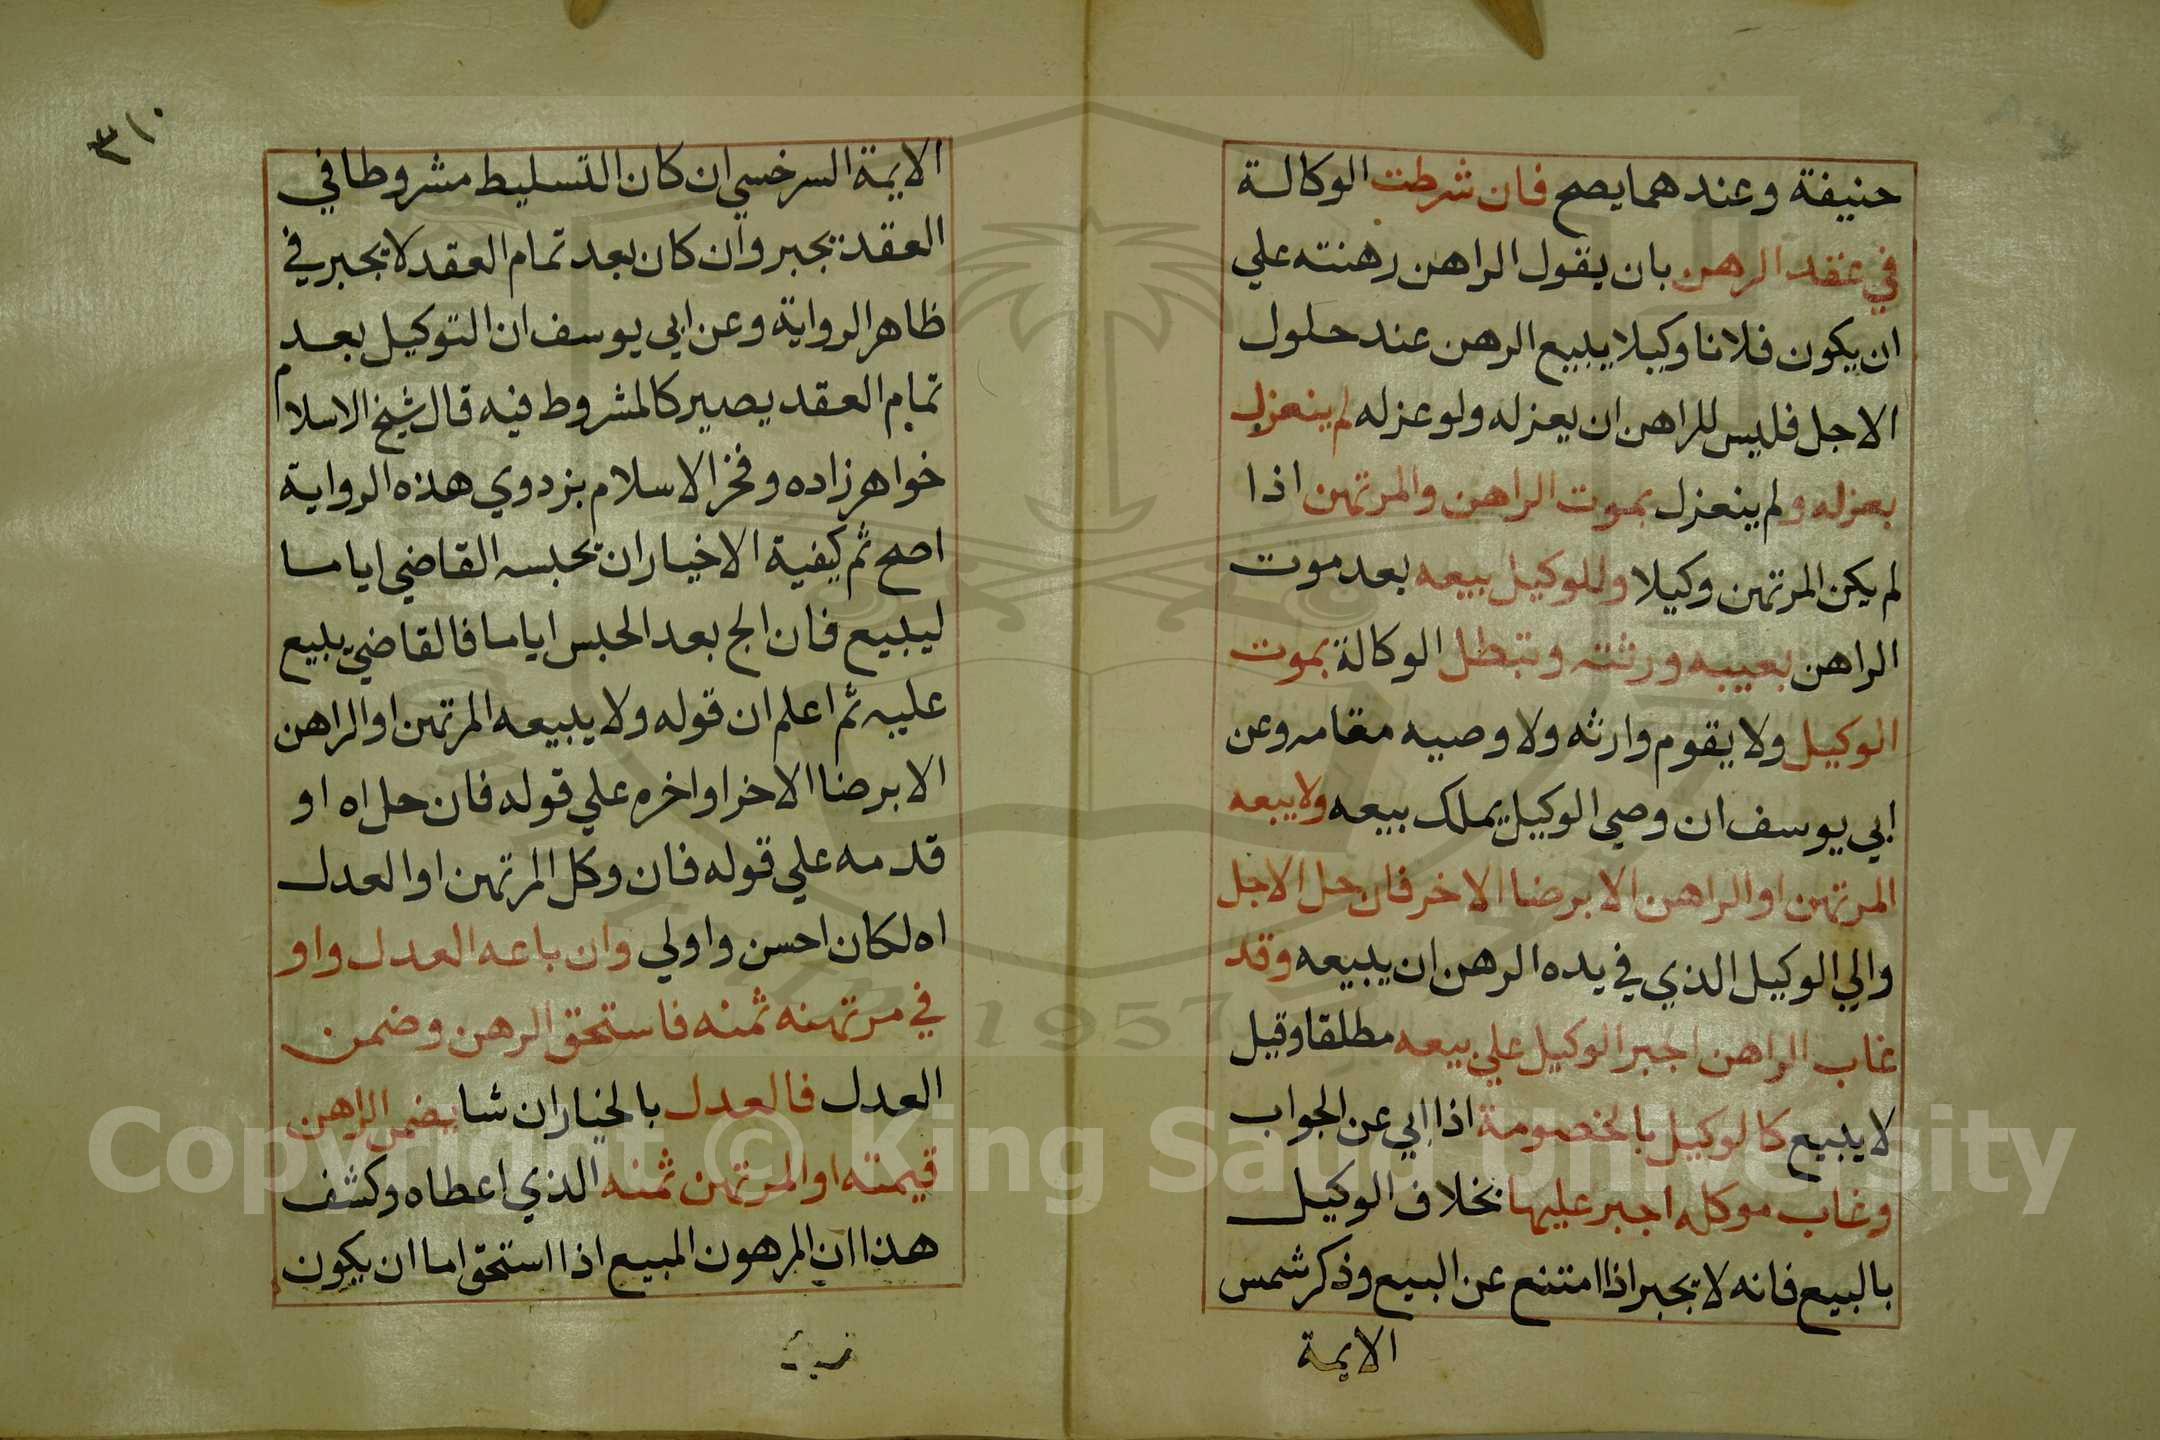 حنيفة وعندهما يصح فان شرطت الوكالة
في عقد الرهن بان يقول الراهن رهنته علي
ان يكون فلانا وكيلا يبيع الرهن عند حلول
الاجل فليس للراهن ان يعزله ولو عزله لم ينعزل
بعزله ولم ينعزل بموت الراهن والمرتهن اذا
لم يكن المرتهن وكيلا وللوكيل بيعه بعد موت
الراهن بغيبه ورثته وتبطل الوكالة بموت
الوكيل ولا يقوم وارثه ولا وصيه مقامه وعن
ابي يوسف ان وصي الوكيل يملك بيعه ولا يبعه
المرتهن او الراهن الا برضا الاخر فان حل الاجل
والي الوكيل الذي في يده الرهن ان يبيعه وقد
غاب الراهن اجبر الوكيل علي بيعه مطلقا وقيل
لا يبيع كالوكيل بالخصومة اذا ابي عن الجواب
وغاب موكله اجبر عليها بخلاف الوكيل
بالبيع فانه لا يجبر اذا امتنع عن البيع وذكر شمس
الايمة
٣١٠
الايمة السرخسي ان كان التسليط مشروطا في
العقد يجبر وان كان بعد تمام العقد لا يجبر في
ظاهر الرواية وعن ابي يوسف ان التوكيل بعد
تمام العقد يصير كالمشروط فيه قال شيخ الاسلام
خواهر زاده وفخر الاسلام بزدوي هذه الرواية
اصح ثم كيفية الاخبار ان يحبسه القاضي اياما
ليبيع فان الج بعد الحبس اياما فالقاضي يبيع
عليه ثم اعلم ان قوله ولا يبيعه المرتهن او الراهن
الا برضا الاخر او اخره علي قوله فان حل اه او
قدمه علي قوله فان وكل المرتهن او العدل
اه لكان احسن واولي وان باعه العدل واو
في مرتهنه ثمنه فاستحق الرهن وضمن
العدل فالعدل بالخيار ان شا يضمن الراهن
قيمته او المرتهن ثمنه الذي اعطاه وكشف
هذا ان المرهون المبيع اذا استحق اما ان يكون
Copyright © King Saud University
1957